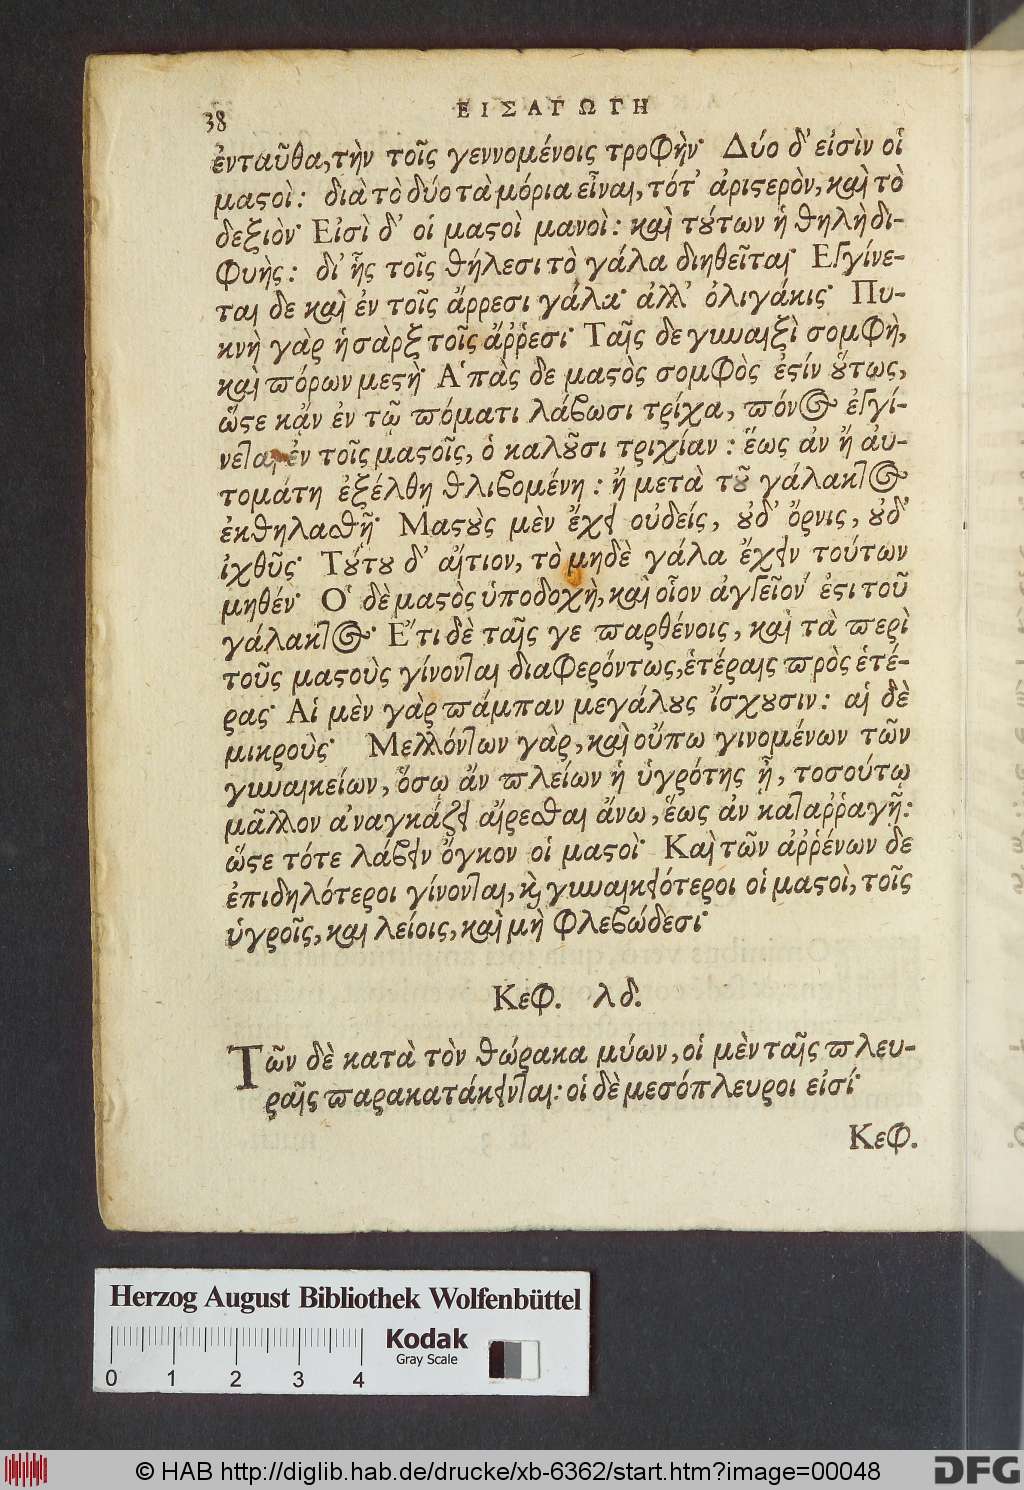 38
ΕΙΣΑΓΩΓΗ
ἐνταῦθα, τὴν τοῖς γεννομένοις τροφὴν· Δύο δ' εἰσὶν οἱ
μαςοὶ: διὰ τὸ δύο τὰ μόρια εἶναι, τότ' ἀριςερὸν, καὶ τὸ
δεξιὸν· Εἰσὶ δ' οἱ μαςοὶ μανοὶ: καὶ τȣ́των ἡ θηλὴ δι-
φυὴς: δι' ἧς τοῖς θήλεσι τὸ γάλα διηθεῖται· Εγγίνε-
ται δε καὶ ἐν τοῖς ἄρρεσι γάλα· ἀλλ' ὀλιγάκις· Πυ-
κνὴ γὰρ ἡ σὰρξ τοῖς ἄῤῥεσι· Ταῖς δε γυναιξὶ σομφὴ,
καὶ πόρων μεςὴ· Ἁπὰς δε μαςὸς σομφὸς ἐςίν ȣ̔́τως,
ὥςε κᾀν ἐν τῷ πόματι λάβωσι τρίχα, πόνος ἐγγί-
νεται ἐν τοῖς μαςοῖς, ὁ καλȣ͂σι τριχίαν: ἕως ἀν ἤ ἀυ-
τομάτη ἐξέλθη θλιβομένη: ἤ μετὰ τȣ͂ γάλακτος
ἐκθηλασθῇ· Μαςȣ̀ς μὲν ἔχει οὐδείς, ȣ̓δ' ὄρνις, ȣ̓δ'
ἰχθῦς· Τȣ́τȣ δ' αἴτιον, τὸ μηδὲ γάλα ἔχειν τούτων
μηθέν· Ὁ δὲ μαςὸς ὑποδοχὴ, καὶ οἷον ἀγγεῖον ἐςι τοῦ
γάλακτος· Ἔτι δὲ ταῖς γε παρθένοις, καὶ τὰ περὶ
τοῦς μαςοὺς γίνονται διαφερόντως, ἑτέραις πρὸς ἑτέ-
ρας· Αἱ μὲν γὰρ πάμπαν μεγάλȣς ἴσχȣσιν: αἱ δὲ
μικροὺς· Μελλόντων γὰρ, καὶ οὔπω γινομένων τῶν
γυναικείων, ὅσῳ ἄν πλείων ἡ ὑγρότης ᾖ, τοσούτῳ
μᾶλλον ἀναγκάζει αἴρεσθαι ἄνω, ἕως ἀν καταῤῥαγῇ:
ὥςε τότε λάβειν ὄγκον οἱ μαςοὶ· Καὶ τῶν ἀῤῥένων δε
ἐπιδηλότεροι γίνονται, ϗ γυναικειότεροι οἱ μαςοὶ, τοῖς
ὑγροῖς, και λείοις, καὶ μὴ φλεβώδεσι·
Κεφ. λδ.
Τῶν δὲ κατὰ τὸν θώρακα μύων, οἱ μὲν ταῖς πλευ-
ραῖς παρακατάκεινται: οἱ δὲ μεσόπλευροι εἰσί·
Κεφ.
Herzog August Bibliothek Wolfenbüttel
Kodak
Gray Scale
0 1 2 3 4
© HAB http://diglib.hab.de/drucke/xb-6362/start.htm?image=00048
DFG